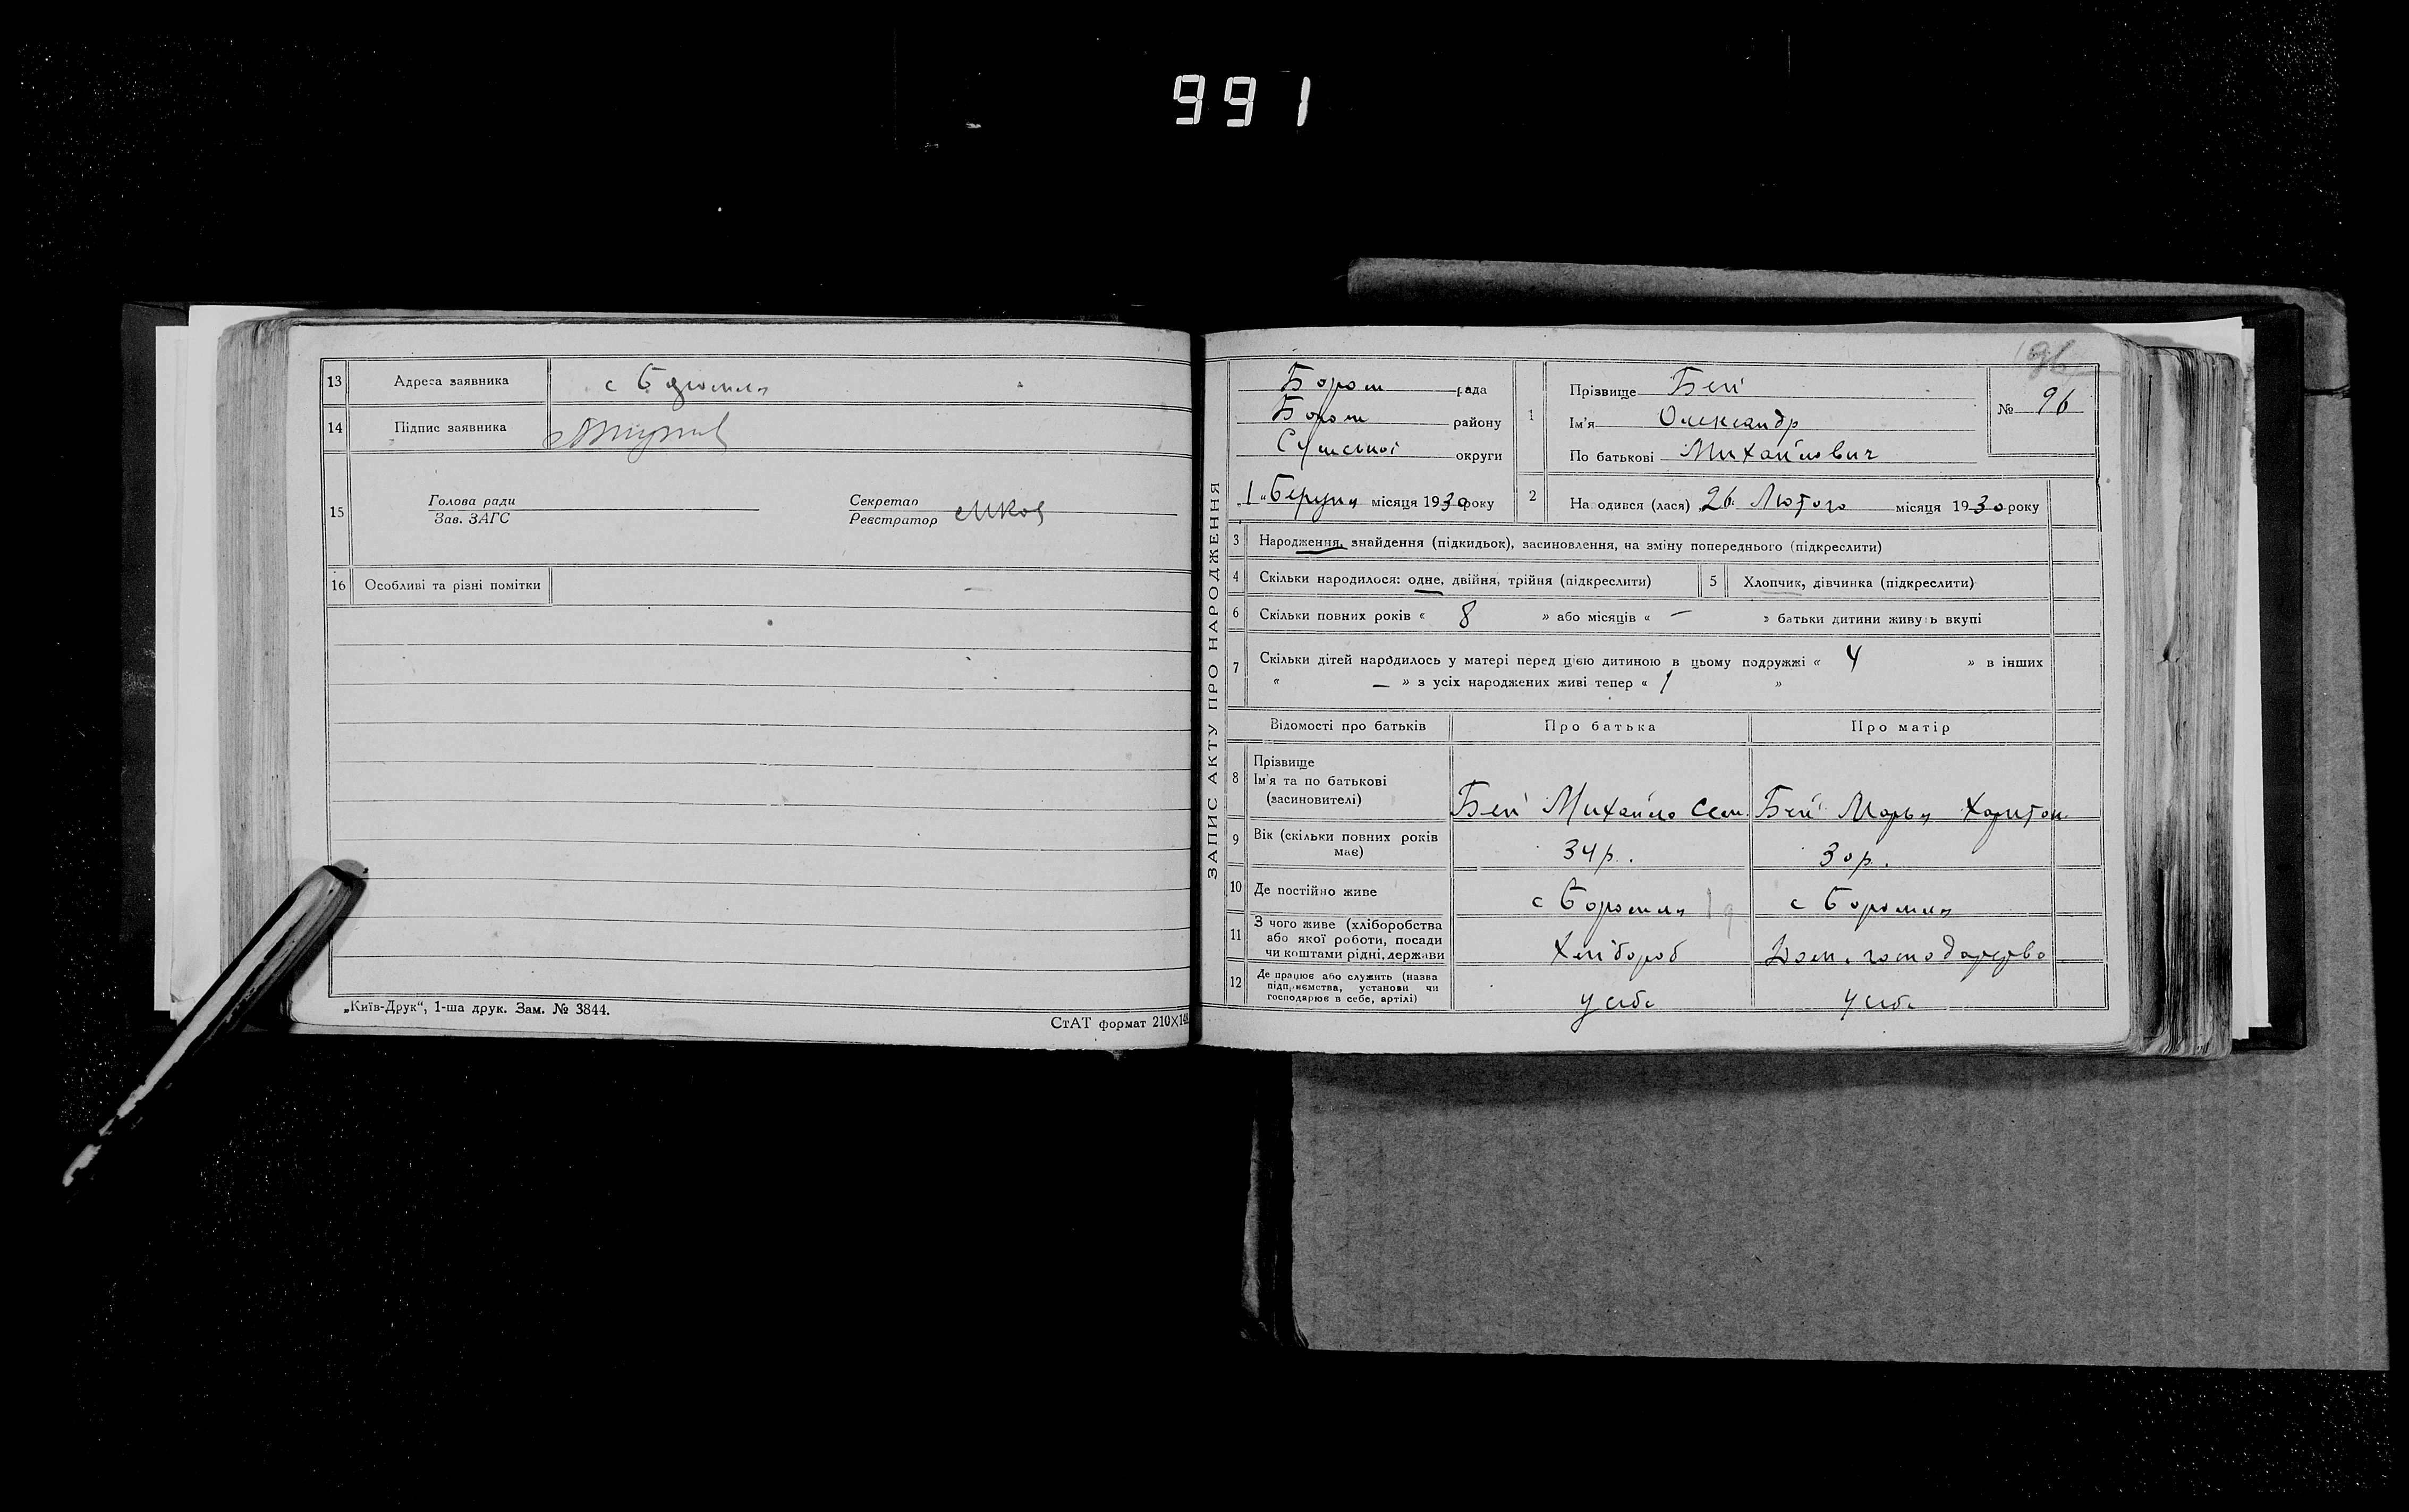 991
13 Адреса заявника с Боромля
14 Підпис заявника
15 Голова ради
Зав. ЗАГС
Секретар
Реєстратор
16 Особливі та різні помітки
„Київ-Друк“, 1-ша друк. Зам. № 3844.
СтАТ формат 210X148
ЗАПИС АКТУ ПРО НАРОДЖЕННЯ
96
Бором рада
Бором району
Сумської округи
1 „Березня місяця 1930 року
1 Прізвище Бей
Ім'я Олександр
По батькові Михайлович
№ 96
2 Народився (лася) 26 Лютого місяця 1930 року
3 Народження, знайдення (підкидьок), засиновлення, на зміну попереднього (підкреслити)
4 Скільки народилося: одне, двійня, трійня (підкреслити)
5 Хлопчик, дівчинка (підкреслити)
6 Скільки повних років « 8 » або місяців « – » батьки дитини живуть вкупі
7 Скільки дітей народилось у матері перед цією дитиною в цьому подружжі « 4 » в інших
« – » з усіх народжених живі тепер « 1 »
Відомості про батьків Про батька Про матір
8 Прізвище
Ім'я та по батькові
(засиновителі)
Бей Михайло Сем. Бей Марья Харитон.
9 Вік (скільки повних років
має)
34 р. 30 р.
10 Де постійно живе с Боромля с Боромля
11 З чого живе (хліборобства
або якої роботи, посади
чи коштами рідні, держави
Хлібороб Дом. господарство
12 Де працює або служить (назва
підприємства, установи чи
господарює в себе, артілі)
у себе у себе